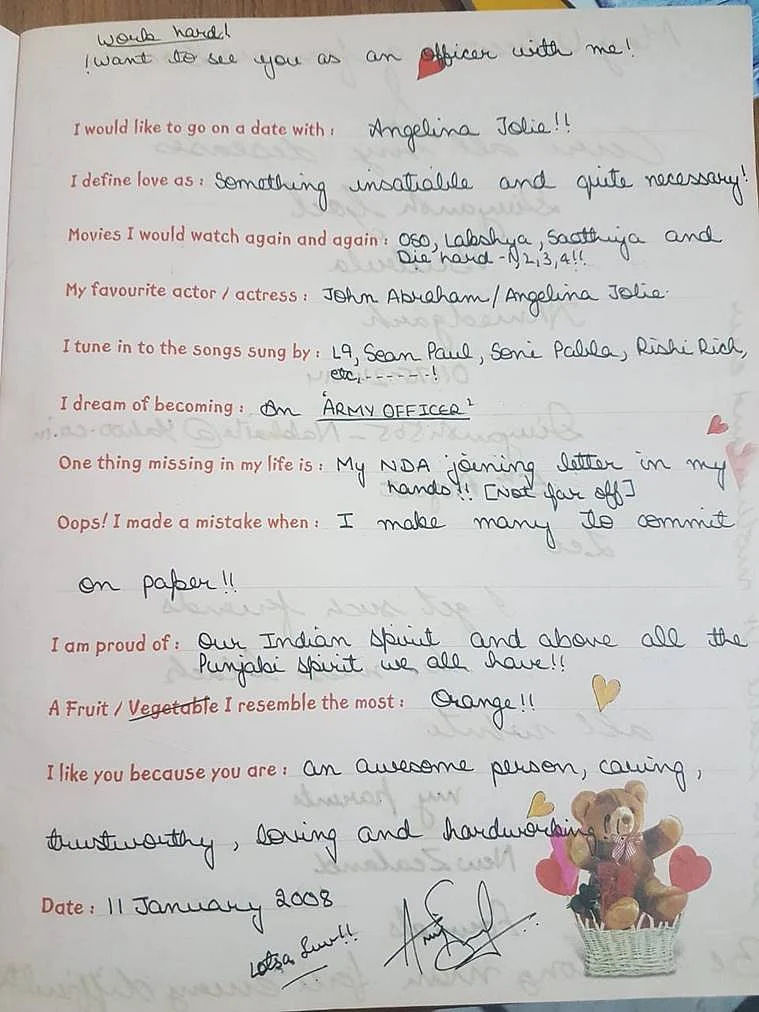 Work hard!
I want to see you as an officer with me!
I would like to go on a date with : Angelina Jolie!!
I define love as : Something insatiable and quite necessary!
Movies I would watch again and again : OSO, Lakshya, Saathiya and
Die hard - 1,2,3,4!!
My favourite actor / actress : John Abraham / Angelina Jolie.
I tune in to the songs sung by : L9, Sean Paul, Soni Pabla, Rishi Rich,
etc,------!
I dream of becoming : An 'ARMY OFFICER'
One thing missing in my life is : My NDA joining letter in my
hands!! [Not far off]
Oops! I made a mistake when : I make many to commit
on paper!!
I am proud of : Our Indian spirit and above all the
Punjabi spirit we all have!!
A Fruit / Vegetable I resemble the most : Orange!!
I like you because you are : an awesome person, caring,
trustworthy, loving and hardworking!!
Date : 11 January 2008
Lotsa luv!!